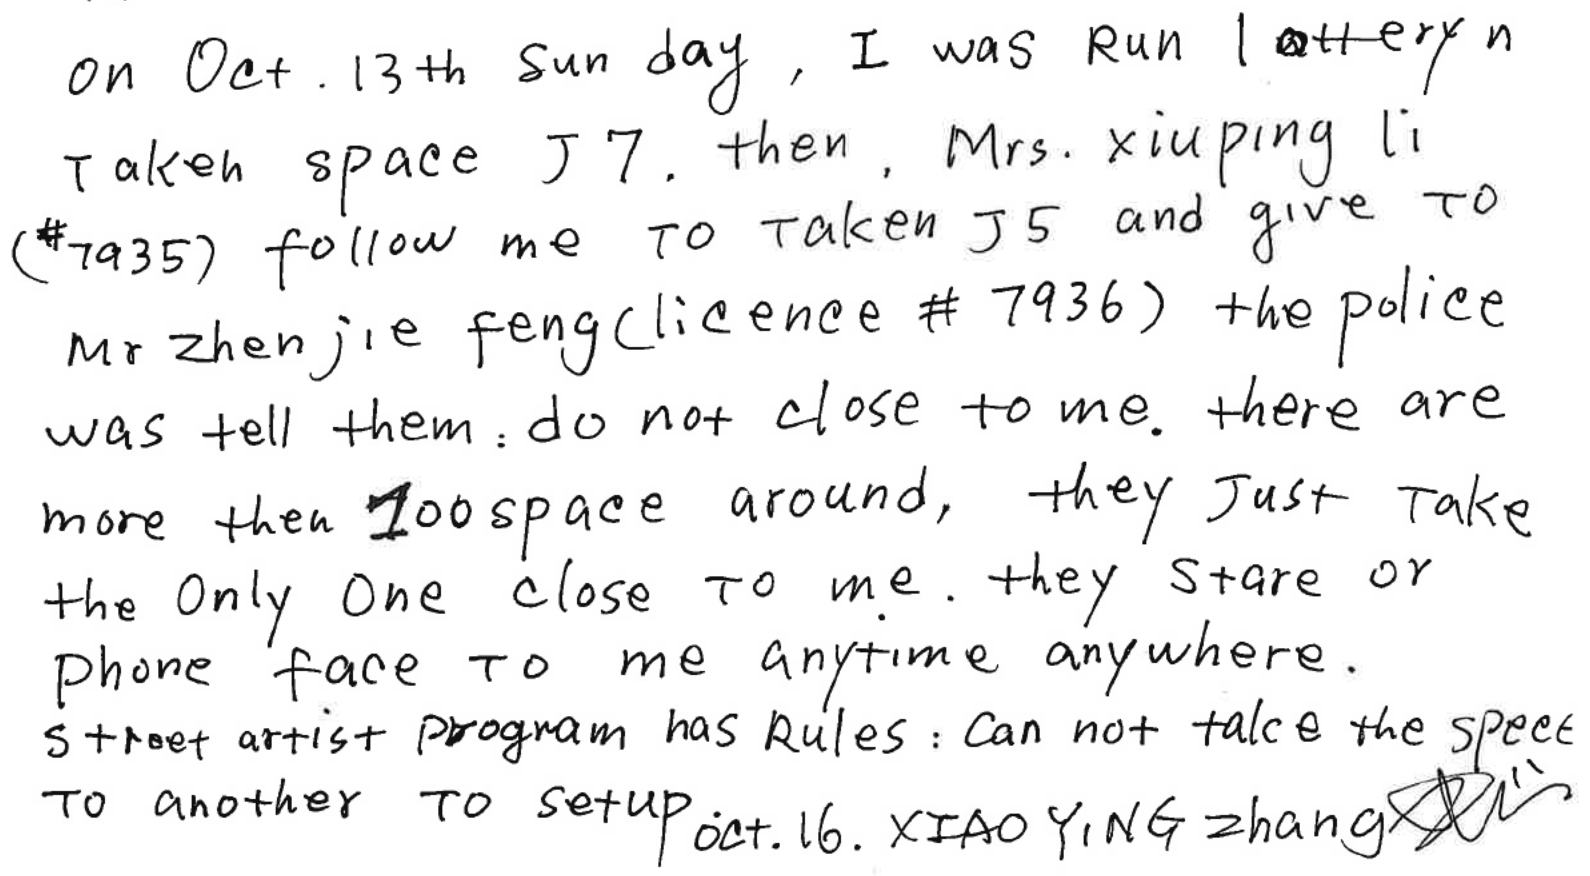 on Oct. 13th Sunday, I was Run lottery n
Taken space J7. then, Mrs. xiuping li
(#7935) follow me TO Taken J5 and give TO
Mr zhenjie feng (licence # 7936) the police
was tell them: do not close to me. there are
more then 100 space around, they Just Take
the Only One close TO me. they stare or
phone face TO me anytime anywhere.
street artist program has Rules: Can not take the spece
TO another TO setup oct. 16. XIAO YING zhang